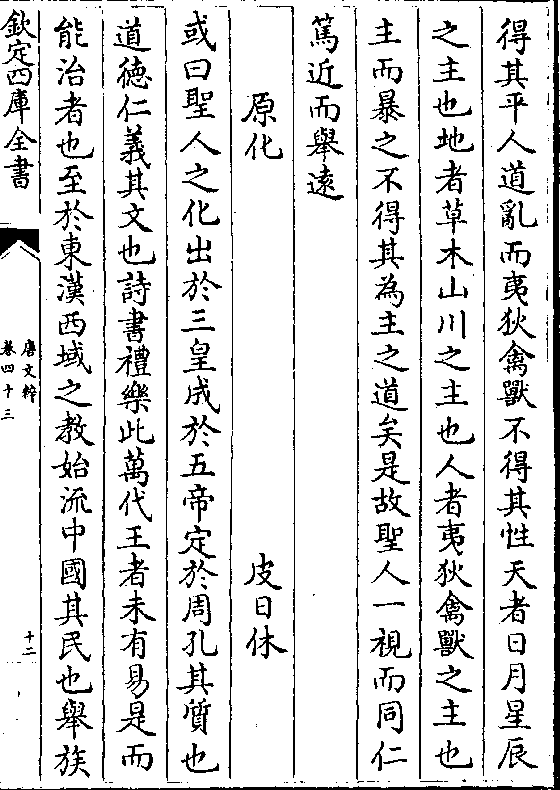 得其平人道亂而夷狄禽獸不得其性天者日月星辰
之主也地者草木山川之主也人者夷狄禽獸之主也
主而暴之不得其為主之道矣是故聖人一視而同仁
篤近而舉遠
原化 皮日休
或曰聖人之化出於三皇成於五帝定於周孔其質也
道德仁義其文也詩書禮樂此萬代王者未有易是而
能治者也至於東漢西域之教始流中國其民也舉族
欽定四庫全書
唐文粹
卷四十三
十二